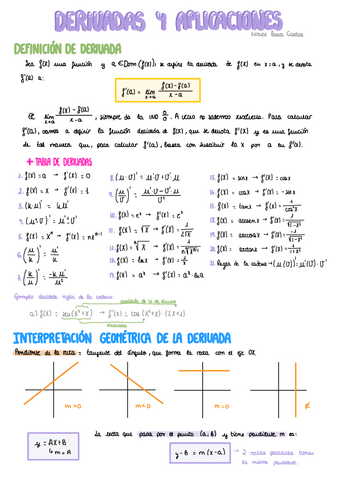 DERIVADAS Y APLICACIONES
DEFINICIÓN DE DERIVADA
Sea f(x) una función y a ∈ Dom (f(x)); se define la derivada de f(x) en x=a, y se denota
f'(a) a:
f'(a) = lim x→a (f(x)-f(a))/(x-a)
El lim x→a (f(x)-f(a))/(x-a), siempre da la IND 0/0. A veces no sabremos resolverla. Para calcular
f'(a), vamos a definir la función derivada de f(x), que se denota f'(x) y es una función
de tal manera que, para calcular f'(a), basta con sustituir la x por a en f'(x).
+ TABLA DE DERIVADAS
1. f(x) = a → f'(x) = 0
2. f(x) = x → f'(x) = 1
3. (k·μ)' = k·μ'
4. (μ+U)' = μ'+U'
5. f(x) = xⁿ → f'(x) = nxⁿ⁻¹
6. (μ/k)' = μ'/k
7. (k/μ)' = -k·μ'/μ²
8. (μ·U)' = μ'·U+U'·μ
9. (μ/U)' = (μ'·U-U'·μ)/U²
10. f(x) = eˣ → f'(x) = eˣ
11. f(x) = √x → f'(x) = 1/(2√x)
12. f(x) = ⁿ√x → f'(x) = 1/(n ⁿ√xⁿ⁻¹)
13. f(x) = ln x → f'(x) = 1/x
14. f(x) = aˣ → f'(x) = aˣ·ln a
15. f(x) = sin x → f'(x) = cos x
16. f(x) = cos x → f'(x) = -sin x
17. f(x) = tan x → f'(x) = 1/cos²x
18. f(x) = arcsen x → f'(x) = 1/√(1-x²)
19. f(x) = arccos x → f'(x) = -1/√(1-x²)
20. f(x) = arctan x → f'(x) = 1/(1+x²)
21. Regla de la cadena → (μ(U))' = μ'(U)·U'
Ejemplo derivada regla de la cadena:
derivada de lo de dentro
a) f(x) = sen(x²+x) → f'(x) = cos(x²+x)·(2x+1)
derivada
INTERPRETACIÓN GEOMÉTRICA DE LA DERIVADA
Pendiente de la recta = tangente del ángulo, que forma la recta con el eje OX.
m>0
m<0
m=0
∄
La recta que pasa por el punto (a,b) y tiene pendiente m es:
y = Ax+B
m = A
y-b = m(x-a)
→ 2 rectas paralelas tienen
la misma pendiente.